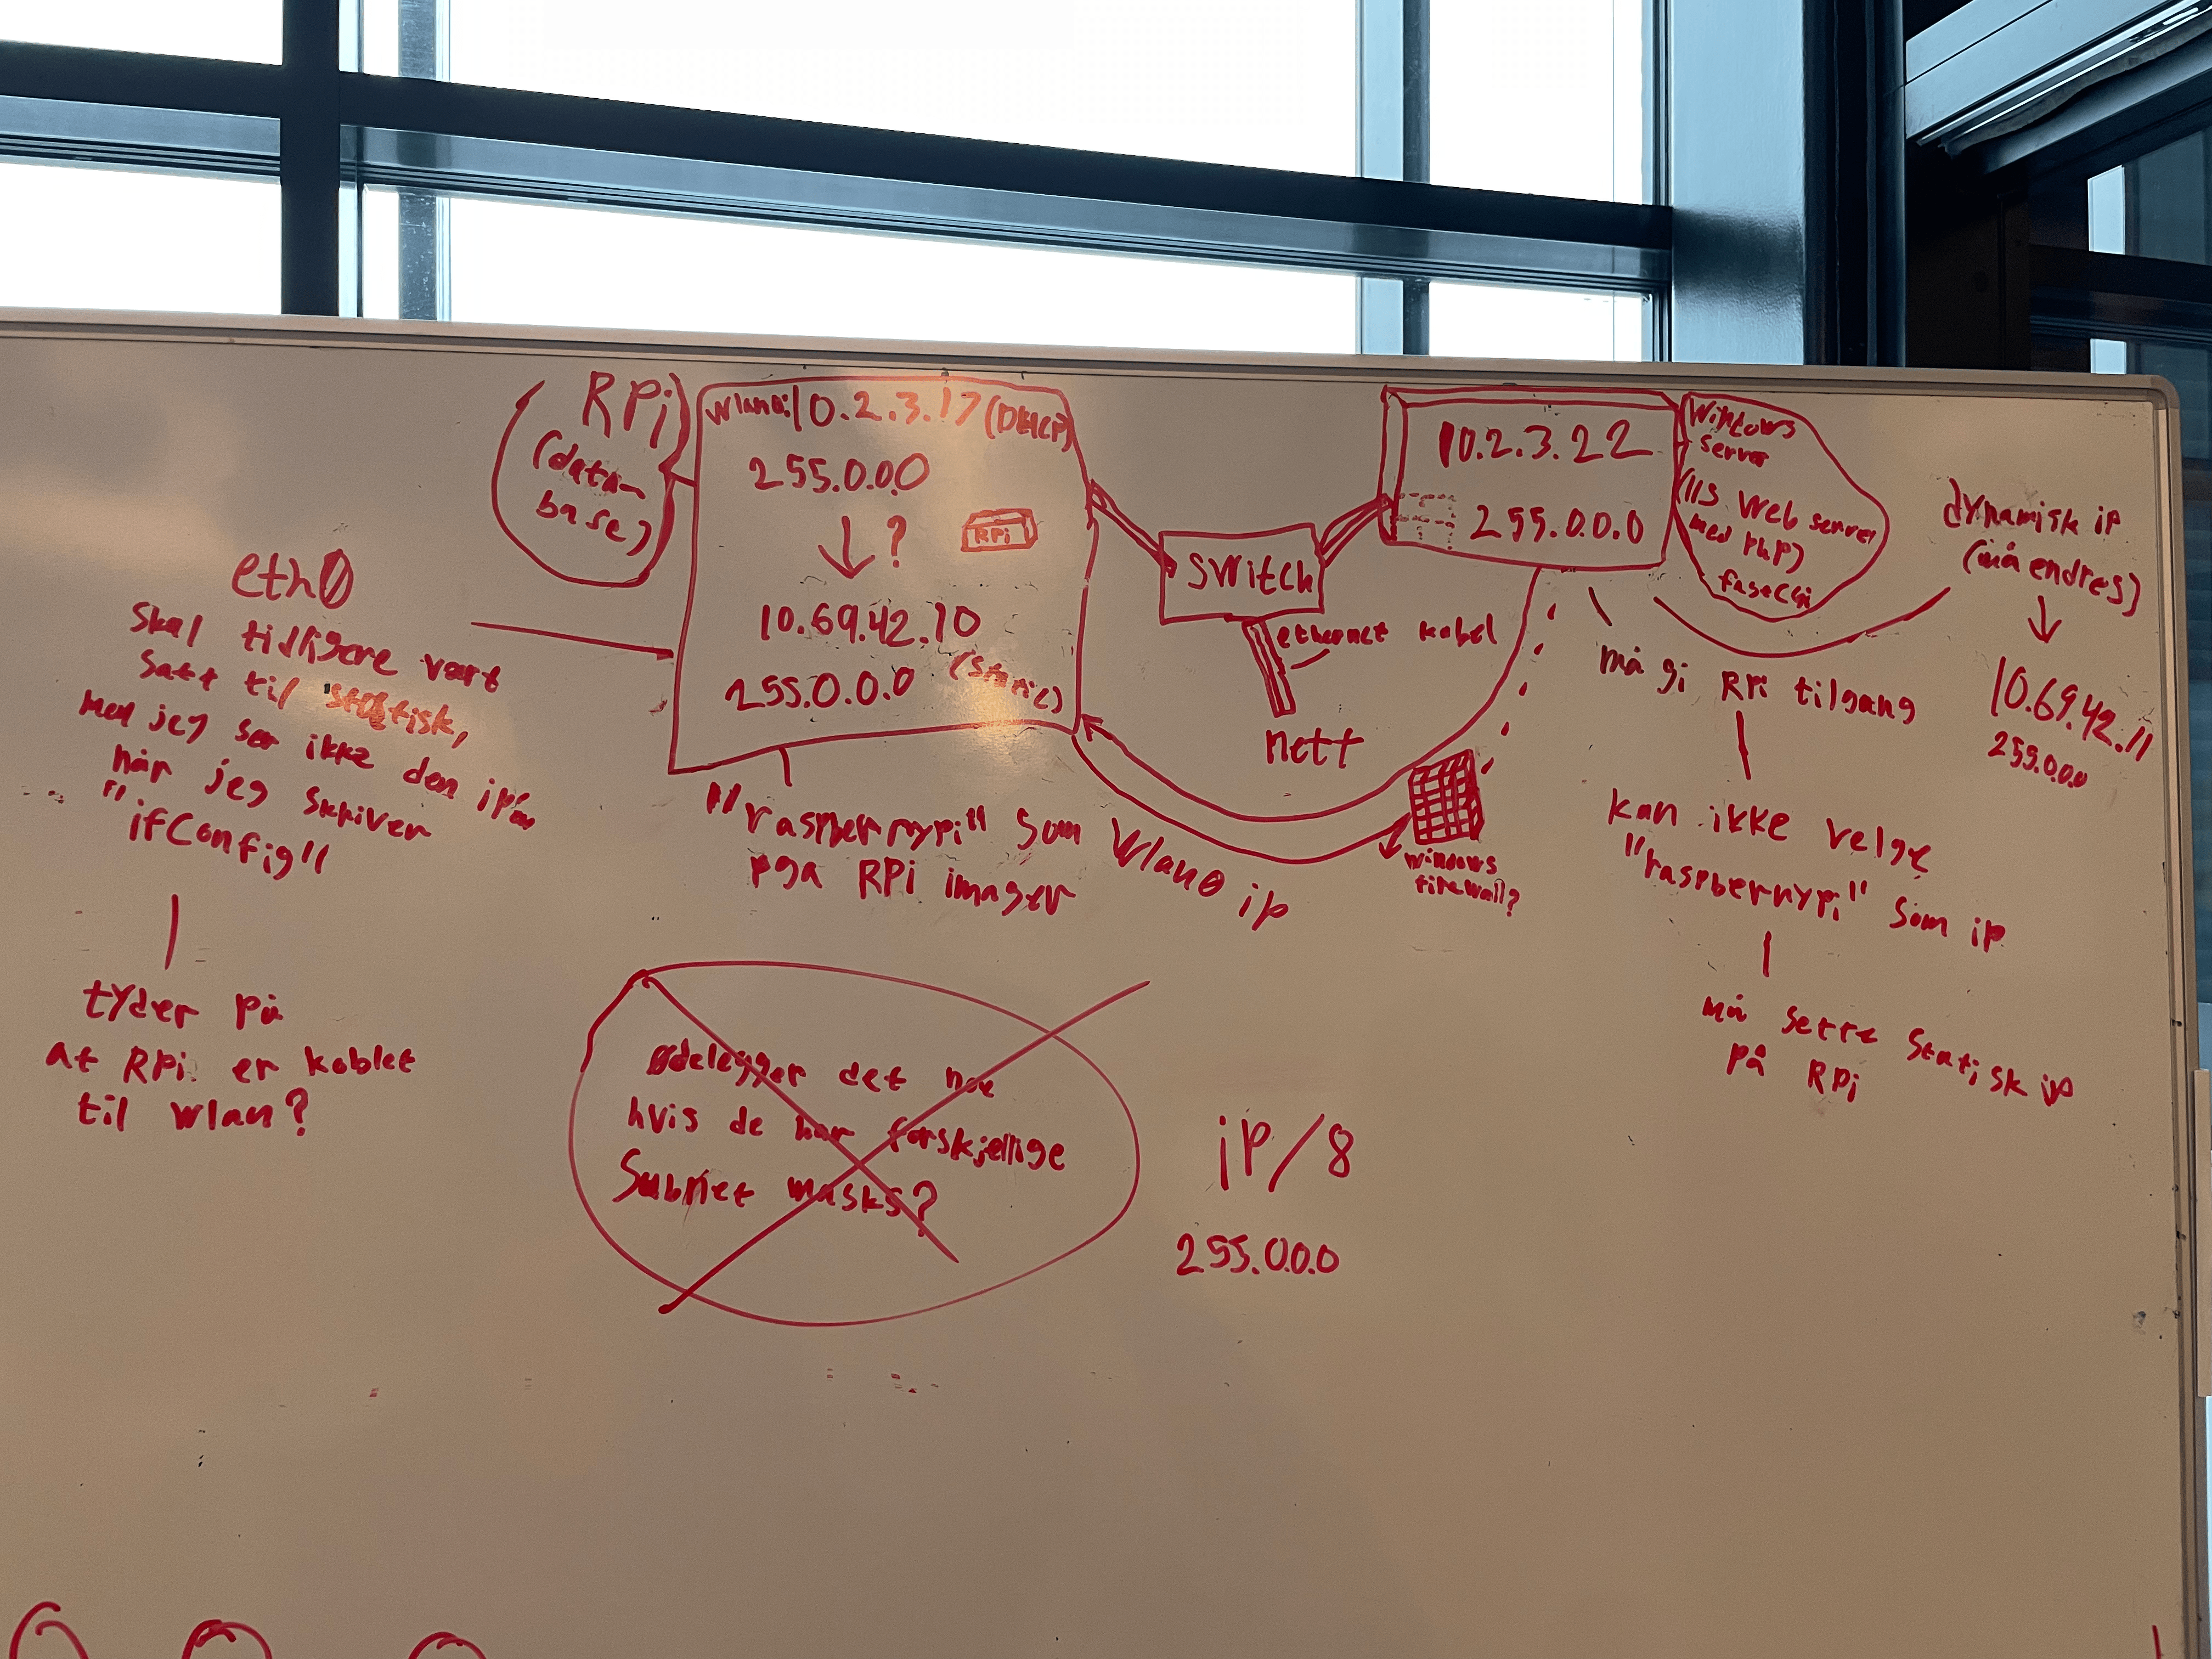 RPi
(data-
base)
wlan0: 10.2.3.17 (DHCP)
255.0.0.0
↓ ?
RPi
10.69.42.10
(static)
255.0.0.0
switch
ethernet kabel
nett
10.2.3.22
255.0.0.0
Windows
server
(IIS Web server
med PHP)
fastCgi
dynamisk ip
(må endres)
↓
10.69.42.11
255.0.0.0
eth0
Skal tidligere vært
satt til statisk,
men jeg ser ikke den ip'en
når jeg skriver
"ifconfig"
tyder på
at RPi er koblet
til wlan?
"raspberrypi" som Wlan0 ip
pga RPi imager
windows
firewall?
må gi RPi tilgang
kan ikke velge
"raspberrypi" som ip
må sette statisk ip
på RPi
ødelegger det noe
hvis de har forskjellige
Subnet masks?
ip/8
255.0.0.0